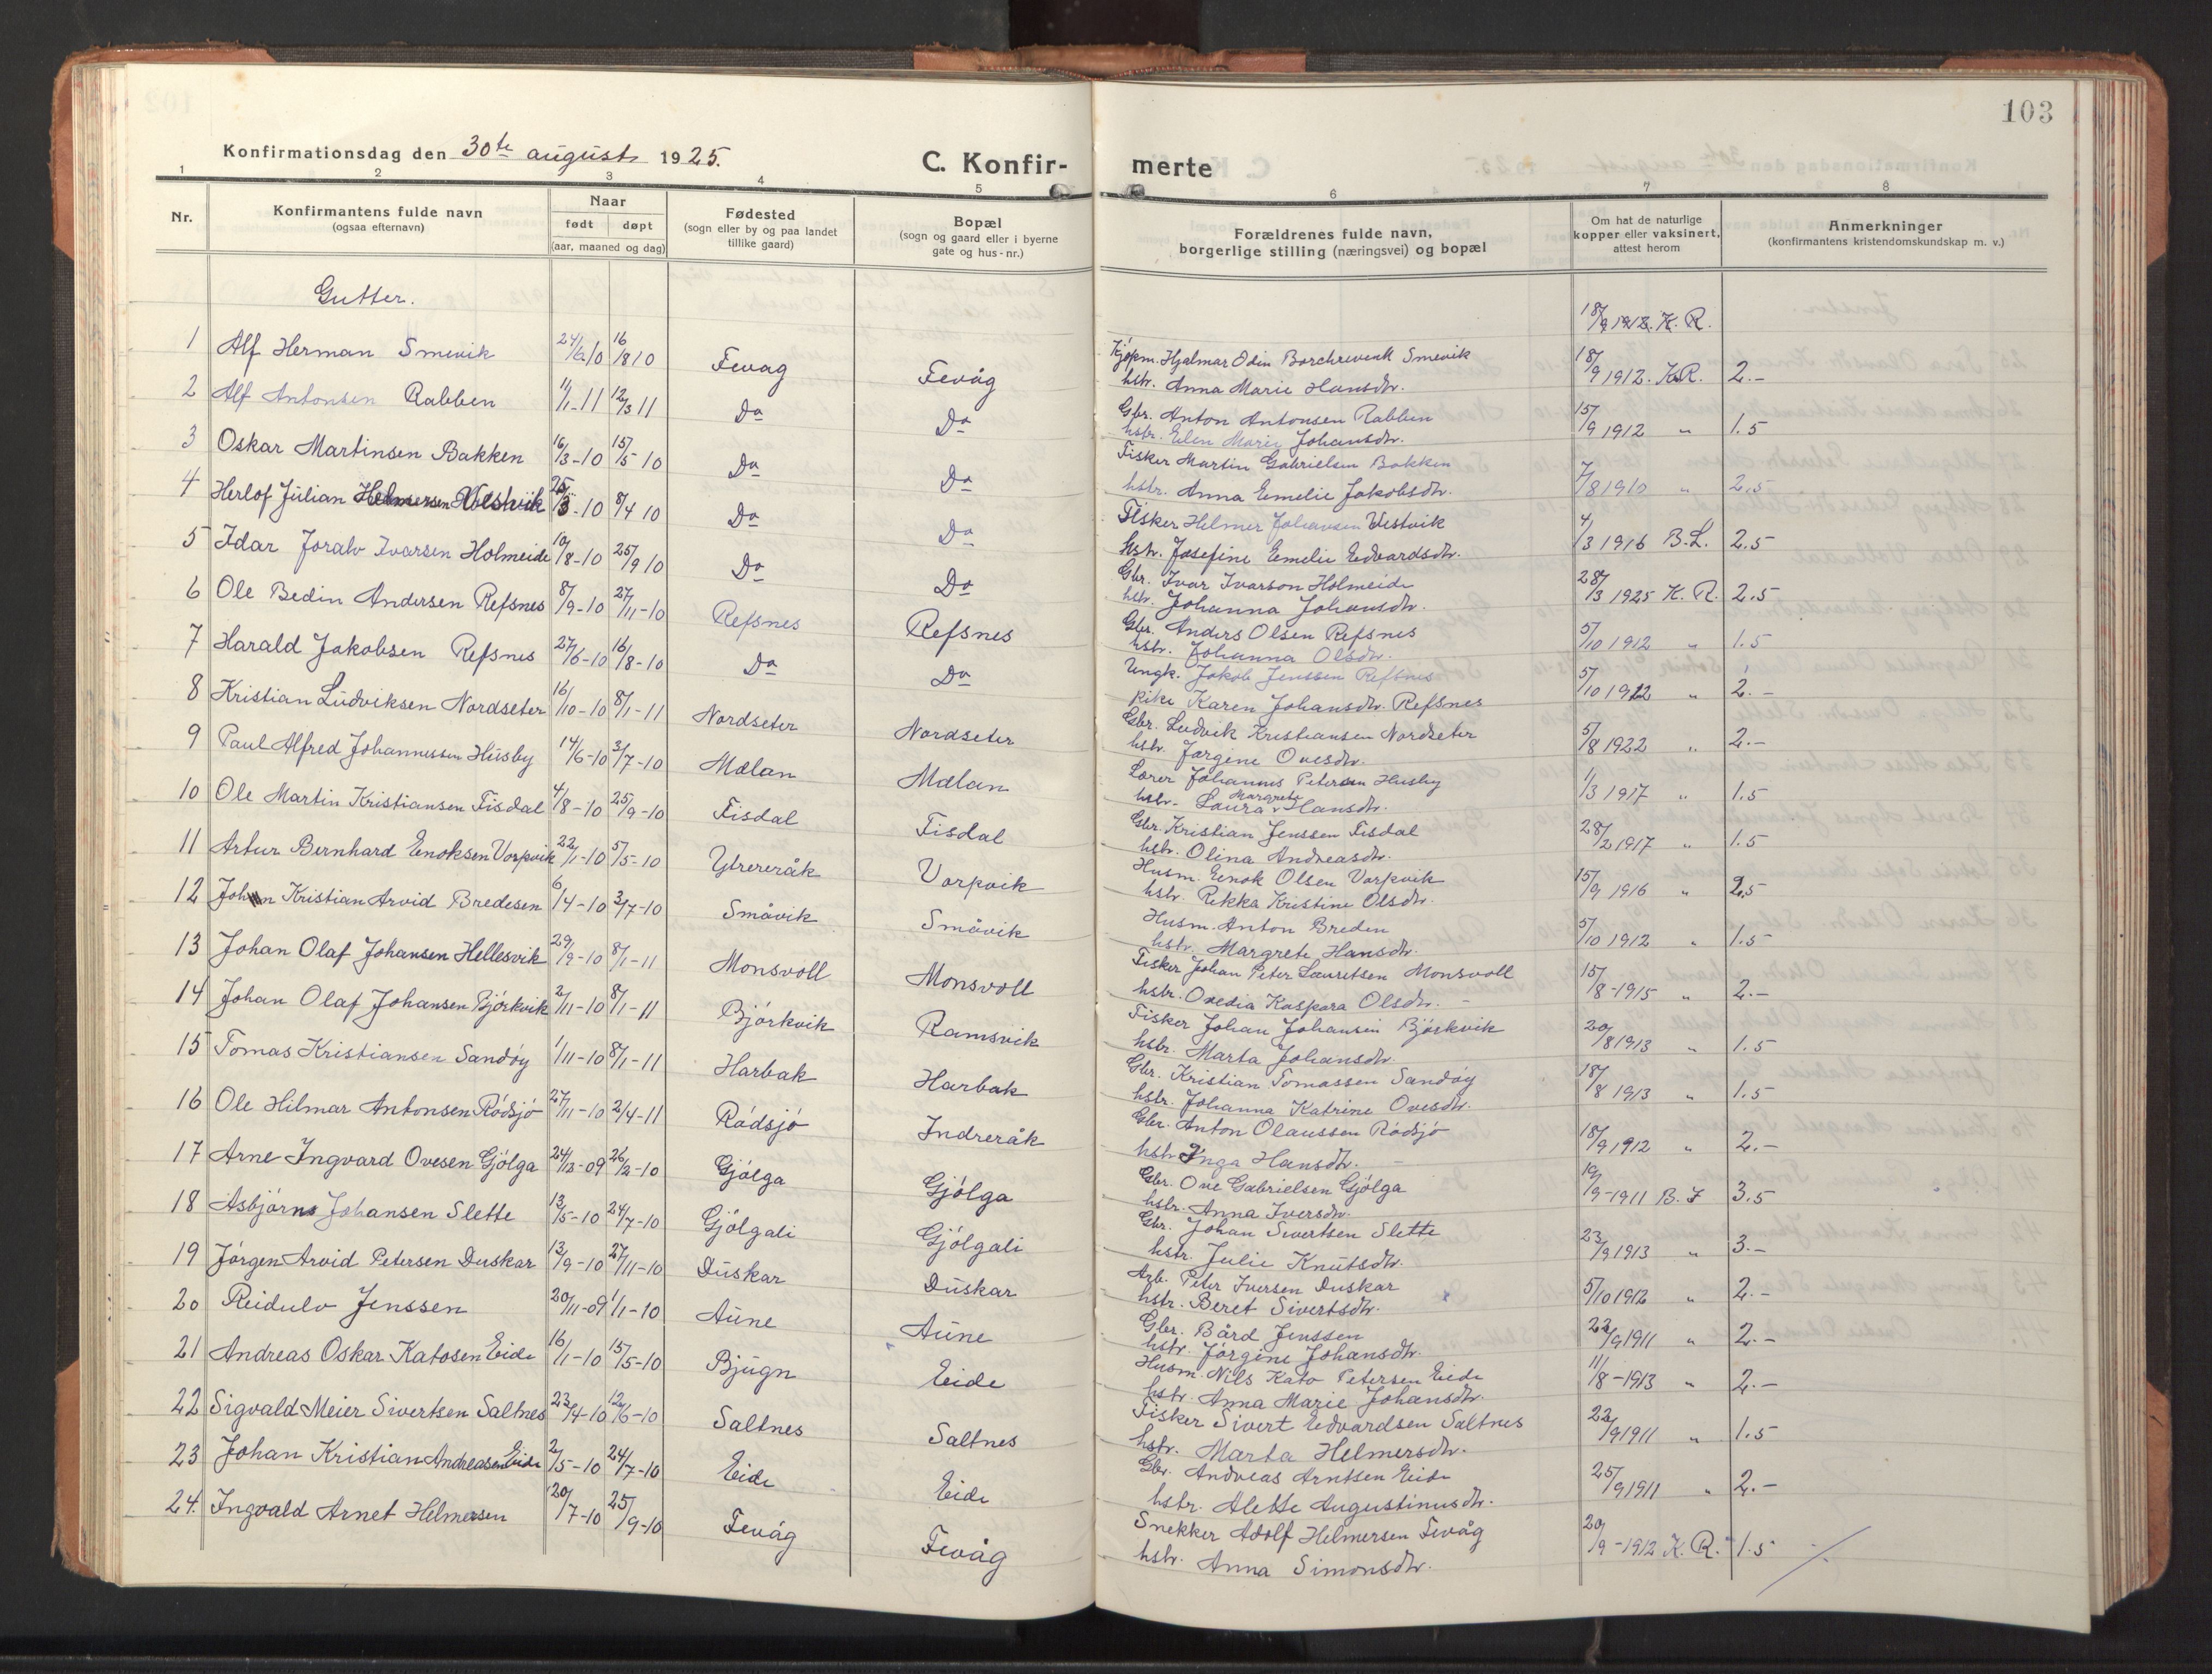 103
Konfirmationsdag den 30te august 1925.
C. Konfir- merte
1 2 3 4 5 6 7 8
Nr.
Konfirmantens fulde navn
(ogsaa efternavn)
Naar
født døpt
(aar, maaned og dag)
Fødested
(sogn eller by og paa landet
tillike gaard)
Bopæl
(sogn og gaard eller i byerne
gate og hus-nr.)
Forældrenes fulde navn,
borgerlige stilling (næringsvei) og bopæl
Om hat de naturlige
kopper eller vaksinert,
attest herom
Anmerkninger
(konfirmantens kristendomskundskap m. v.)
Gutter.
18/9 1912. K. R.
1 Alf Herman Smevik 24/6 10 16/8 10 Fevag Fevåg
Kjøpm. Hjalmar Odin Borchrevenk Smevik
hstr. Anna Marie Hansdtr.
18/9 1912. K.R. 2.-
2 Alf Antonsen Rabben 11/1-11 12/3 11 Do Do
Gbr. Anton Antonsen Rabben
hstr. Elen Marie Johansdtr.
15/9 1912 " 1.5
3 Oskar Martinsen Bakken 16/3-10 15/5 10 Do Do
Fisker Martin Gabrielsen Bakken
hstr. Anna Emelie Jakobsdtr.
7/8 1910 " 2.5
4 Herlof Julian Helmersen Vestvik 25/3-10 8/4 10 Do Do
Fisker Helmer Johansen Vestvik
hstr. Josefine Emelie Edvardsdtr.
4/3 1916 B.L. 2.5
5 Idar Joralv Ivarsen Holmeide 10/8-10 25/9 10 Do Do
Gbr. Ivar Ivarson Holmeide
hstr. Johanna Johansdtr.
28/3 1925 K. R. 2.5
6 Ole Bedin Andersen Refsnes 8/9-10 27/11-10 Refsnes Refsnes
Gbr. Anders Olsen Refsnes
hstr. Johanna Olsdtr.
5/10 1912 " 1.5
7 Harald Jakobsen Refsnes 27/6-10 16/8-10 Do Do
Ungk. Jakob Jenssen Refsnes
pike Karen Johansdtr. Refsnes
5/10 1912 " 2.-
8 Kristian Ludviksen Nordseter 16/10-10 8/1-11 Nordseter Nordseter
Gbr. Ludvik Kristiansen Nordseter
hstr. Jørgine Ovesdtr.
5/8 1922 " 2.-
9 Paul Alfred Johannessen Husby 14/6-10 3/7-10 Mælan Mælan
Lærer Johannes Petersen Husby
hstr. Laura Margrete Hansdtr.
1/3 1917 " 1.5
10 Ole Martin Kristiansen Fisdal 4/8-10 25/9-10 Fisdal Fisdal
Gbr. Kristian Jenssen Fisdal
hstr. Olina Andreasdtr.
28/2 1917 " 1.5
11 Artur Bernhard Enoksen Vorpvik 22/1-10 5/5-10 Ytreråk Vorpvik
Husm. Enok Olsen Vorpvik
hstr. Rekka Kristine Olsdtr.
15/9 1916 " 2,5
12 Johan Kristian Arvid Bredesen 6/4-10 3/7-10 Småvik Småvik
Husm. Anton Breden
hstr. Margrete Hansdtr.
5/10 1912 " 1.5
13 Johan Olaf Johansen Hellesvik 29/9-10 8/1-11 Monsvoll Monsvoll
Fisker Johan Peter Lauritsen Monsvoll
hstr. Ovedia Kaspara Olsdtr. -
15/8-1915 " 2.-
14 Johan Olaf Johansen Bjórkvik 2/11-10 8/1-11 Bjórkvik Ramsvik
Fisker Johan Johansen Bjórkvik
hstr. Marta Johansdtr.
20/8 1913 " 1.5
15 Tomas Kristiansen Sandóy 1/11-10 8/1-11 Harbak Harbak
Gbr. Kristian Tomassen Sandóy
hstr. Johanna Katrine Ovesdtr.
18/8 1913 " 1.5
16 Ole Hilmar Antonsen Ródsjó 27/11-10 2/4-11 Ródsjó Indreråk
Gbr. Anton Olaussen Ródsjó
hstr Inga Hansdtr. -
18/9 1912 " 2.-
17 Arne Ingvard Ovesen Gjólga 24/12-09 26/2-10 Gjólga Gjólga
Gbr. Ove Gabrielsen Gjólga
hstr. Anna Iversdtr.
19/9-1911 B. F 3.5
18 Asbjórn Johansen Slette 13/5-10 24/7-10 Gjólgali Gjólgali
Gbr. Johan Sivertsen Slette
hstr. Julie Knutsdtr.
23/9 1913 " 3.-
19 Jórgen Arvid Petersen Duskar 13/9-10 27/11-10 Duskar Duskar
Arb. Peter Iversen Duskar
hstr. Beret Sivertsdtr.
5/10 1912 " 2.-
20 Reidulv Jenssen 20/11-09 1/1-10 Aune Aune
Gbr. Bård Jenssen
hstr. Jórgine Johansdtr.
22/9 1911 " 2.-
21 Andreas Oskar Katosen Eide 16/1-10 15/5-10 Bjugn Eide
Husm. Nils Kato Petersen Eide
hstr. Anna Marie Johansdtr.
11/8-1913 " 2.-
22 Sigvald Meier Sivertsen Saltnes 23/4-10 12/6-10 Saltnes Saltnes
Fisker Sivert Edvardsen Saltnes
hstr. Marta Helmersdtr.
22/9 1911 " 1.5
23 Johan Kristian Andreasen Eide 2/5-10 24/7-10 Eide Eide
Gbr. Andreas Arntsen Eide
hstr. Alette Augustinusdtr.
25/9 1911 " 2.-
24. Ingvald Arnet Helmersen 20/7-10 25/9-10 Fevåg Fevåg
Snekker Adolf Helmersen Fevåg
hstr. Anna Simonsdtr.
20/9-1912 K. R. 1.5